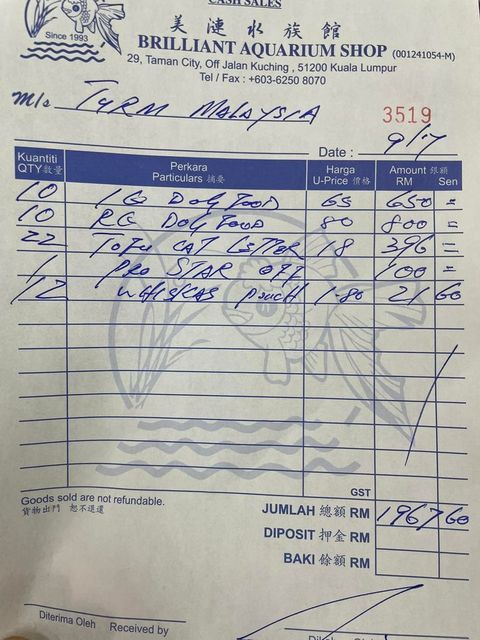 CASH SALES
美 漣 水 族 館
Since 1993
BRILLIANT AQUARIUM SHOP (001241054-M)
29, Taman City, Off Jalan Kuching , 51200 Kuala Lumpur
Tel / Fax : +603-6250 8070
M/s MALAYSIA
3519
Date : 9/7
Kuantiti QTY 數量 Perkara Particulars 摘要 Harga U-Price 價格 Amount 銀額 RM Sen
10 IQ DOG FOOD 65 650 =
10 RG DOG FOOD 80 800 =
22 TOFU CAT LITTER 18 396 =
1 PRO STAR 100 =
12 WHISKAS POUCH 1-80 21 60
GST
Goods sold are not refundable.
貨物出門 恕不退還
JUMLAH 總額 RM 1967 60
DIPOSIT 押金 RM
BAKI 餘額 RM
Diterima Oleh Received by